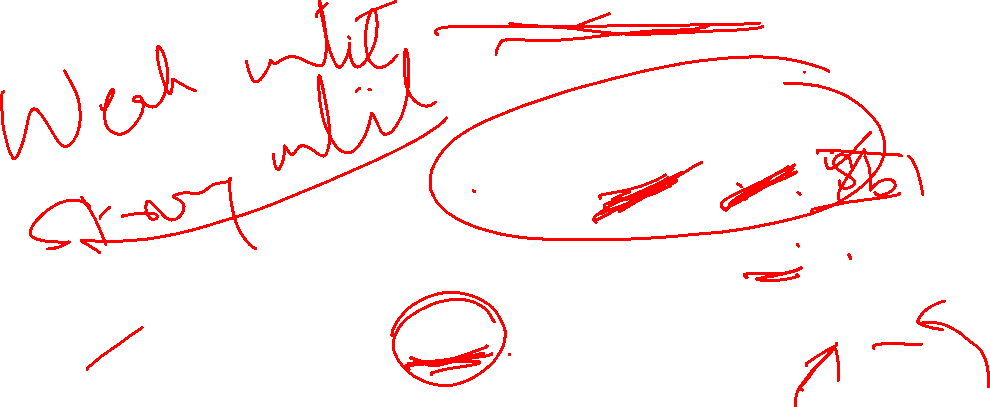 Weak until
Strong until